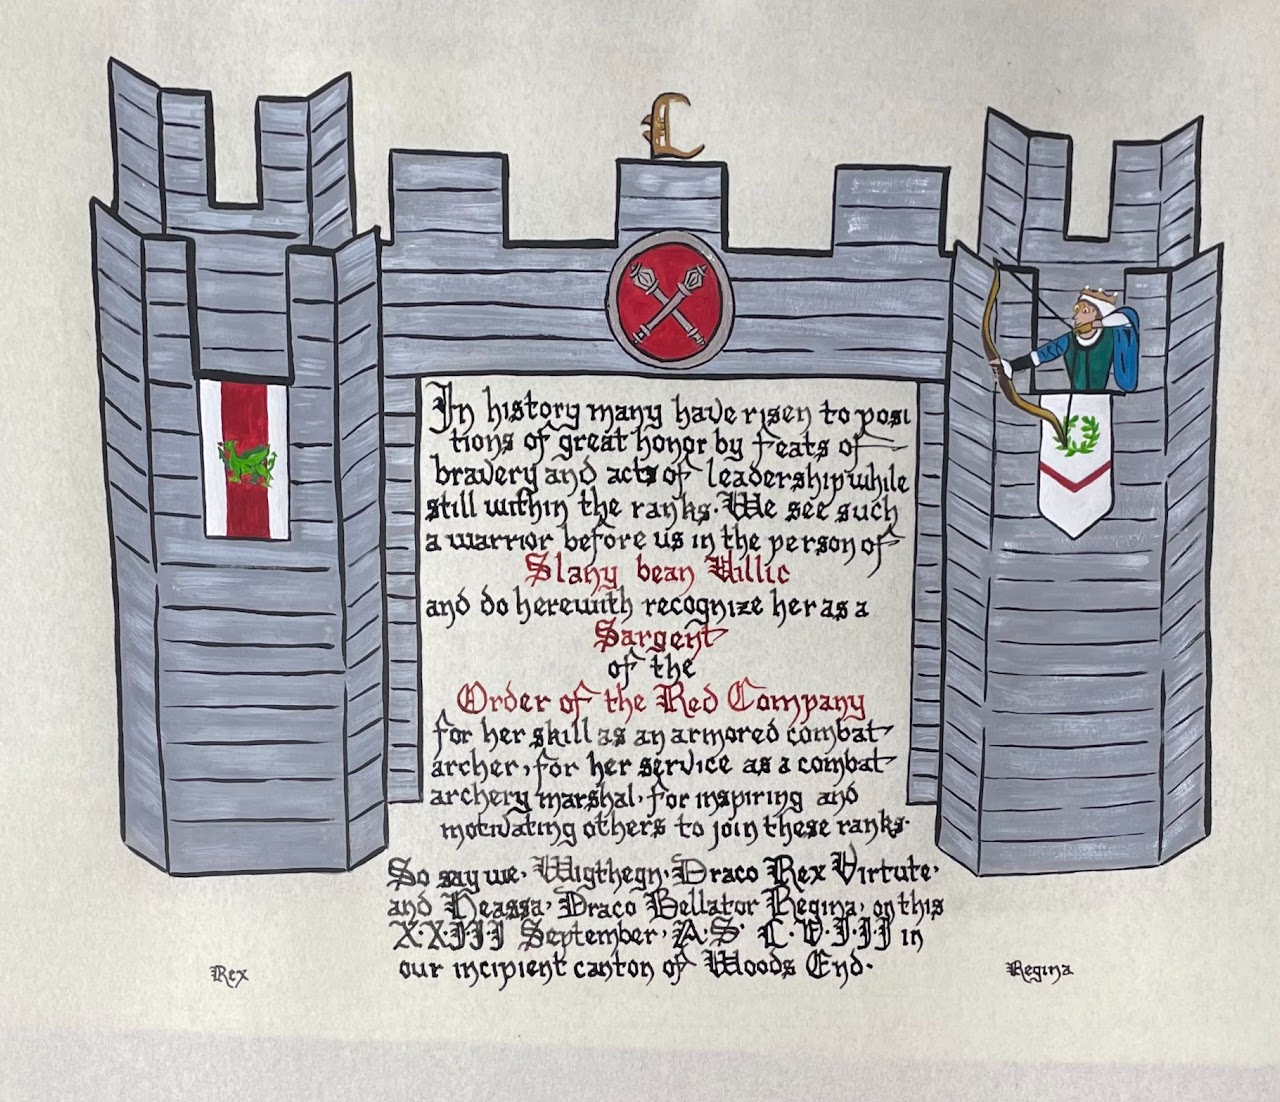 L
In history many have risen to posi
tions of great honor by feats of
bravery and acts of leadership while
still within the ranks. We see such
a warrior before us in the person of
Slany bean Uillic
and do herewith recognize her as a
Sargent
of the
Order of the Red Company
for her skill as an armored combat
archer, for her service as a combat
archery marshal, for inspiring and
motivating others to join these ranks.
So say we, Wigthegn, Draco Rex Virtute,
and Heassa, Draco Bellator Regina, on this
X.X.I.I.I September, A.S. L.V.I.I.I in
our incipient canton of Woods End.
Rex
Regina